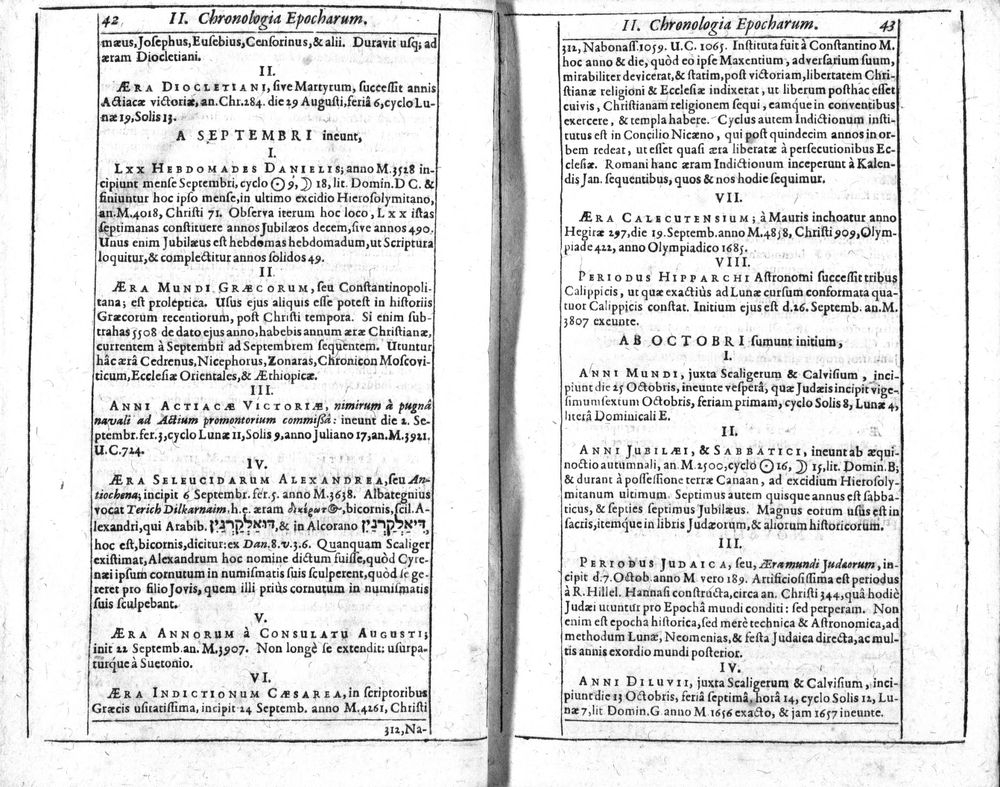 42 II. Chronologia Epocharum.
mæus, Josephus, Eusebius, Censorinus, & alii. Duravit usq; ad
æram Diocletiani.
II.
ÆRA DIOCLETIANI, sive Martyrum, successit annis
Actiacæ victoriæ, an. Chr. 284. die 29 Augusti, feriâ 6, cyclo Lu-
næ 19, Solis 13.
A SEPTEMBRI ineunt,
I.
LXX HEBDOMADES DANIELIS; anno M. 3528 in-
cipiunt mense Septembri, cyclo ☉ 9, ☽ 18, lit. Domin. D C. &
finiuntur hoc ipso mense, in ultimo excidio Hierosolymitano,
an. M. 4018, Christi 71. Observa iterum hoc loco, Lxx istas
septimanas constituere annos Jubilæos decem, sive annos 490.
Unus enim Jubilæus est hebdomas hebdomadum, ut Scriptura
loquitur, & complectitur annos solidos 49.
II.
ÆRA MUNDI GRÆCORUM, seu Constantinopoli-
tana; est proleptica. Usus ejus aliquis esse potest in historiis
Græcorum recentiorum, post Christi tempora. Si enim sub-
trahas 5508 de dato ejus anno, habebis annum æræ Christianæ,
currentem à Septembri ad Septembrem sequentem. Utuntur
hâc ærâ Cedrenus, Nicephorus, Zonaras, Chronicon Moscovi-
ticum, Ecclesiæ Orientales, & Æthiopicæ.
III.
ANNI ACTIACÆ VICTORIÆ, nimirum à pugnâ
navali ad Actium promontorium commissâ: ineunt die 2. Se-
ptembr. fer. 3, cyclo Lunæ 11, Solis 9, anno Juliano 17, an. M. 3921.
U. C. 724.
IV.
ÆRA SELEUCIDARUM ALEXANDREA, seu An-
tiochena; incipit 6 Septembr. fer. 5. anno M. 3638. Albategnius
vocat Terich Dilkarnaim, h. e. æram δικέρωτος, bicornis, scil. A-
lexandri, qui Arabib. דואלקרנין, & in Alcorano דיאלקרנין
hoc est, bicornis, dicitur: ex Dan. 8. v. 3. 6. Quanquam Scaliger
existimat, Alexandrum hoc nomine dictum fuisse, quòd Cyre-
næi ipsum cornutum in numismatis suis sculperent, quòd se ge-
reret pro filio Jovis, quem illi priùs cornutum in numismatis
suis sculpebant.
V.
ÆRA ANNORUM à CONSULATU AUGUSTI;
init 22 Septemb. an. M. 3907. Non longè se extendit: usurpa-
turque à Suetonio.
VI.
ÆRA INDICTIONUM CÆSAREA, in scriptoribus
Græcis usitatissima, incipit 24 Septemb. anno M. 4261, Christi
312, Na-
II. Chronologia Epocharum. 43
312, Nabonass. 1059. U. C. 1065. Instituta fuit à Constantino M.
hoc anno & die, quòd eo ipse Maxentium, adversarium suum,
mirabiliter devicerat, & statim, post victoriam, libertatem Chri-
stianæ religioni & Ecclesiæ indixerat, ut liberum posthac esset
cuivis, Christianam religionem sequi, eamque in conventibus
exercere, & templa habere. Cyclus autem Indictionum insti-
tutus est in Concilio Nicæno, qui post quindecim annos in or-
bem redeat, ut esset quasi æra liberatæ à persecutionibus Ec-
clesiæ. Romani hanc æram Indictionum inceperunt à Kalen-
dis Jan. sequentibus, quos & nos hodie sequimur.
VII.
ÆRA CALECUTENSIUM; à Mauris inchoatur anno
Hegiræ 297, die 19. Septemb. anno M. 4858, Christi 909, Olym-
piade 422, anno Olympiadico 1685.
VIII.
PERIODUS HIPPARCHI Astronomi successit tribus
Calippicis, ut quæ exactiùs ad Lunæ cursum conformata qua-
tuor Calippicis constat. Initium ejus est d. 26. Septemb. an. M.
3807 exeunte.
AB OCTOBRI sumunt initium,
I.
ANNI MUNDI, juxta Scaligerum & Calvisium, inci-
piunt die 25 Octobris, ineunte vesperâ, quæ Judæis incipit vige-
simum sextum Octobris, feriam primam, cyclo Solis 8, Lunæ 4,
literâ Dominicali E.
II.
ANNI JUBILÆI, & SABBATICI, ineunt ab æqui-
noctio autumnali, an. M. 2500, cyclo ☉ 16, ☽ 15, lit. Domin. B;
& durant à possessione terræ Canaan, ad excidium Hierosoly-
mitanum ultimum. Septimus autem quisque annus est sabba-
ticus, & septies septimus Jubilæus. Magnus eorum usus est in
sacris, itemque in libris Judæorum, & aliorum historicorum.
III.
PERIODUS JUDAICA, seu, Æra mundi Judæorum, in-
cipit d. 7. Octob. anno M vero 189. Artificiosissima est periodus
à R. Hillel. Hannasi constructa, circa an. Christi 344, quâ hodiè
Judæi utuntur pro Epochâ mundi conditi: sed perperam. Non
enim est epocha historica, sed merè technica & Astronomica, ad
methodum Lunæ, Neomenias, & festa Judaica directa, ac mul-
tis annis exordio mundi posterior.
IV.
ANNI DILUVII, juxta Scaligerum & Calvisium, inci-
piunt die 13 Octobris, feriâ septimâ, horâ 14, cyclo Solis 12, Lu-
næ 7, lit Domin. G anno M 1656 exacto, & jam 1657 ineunte.